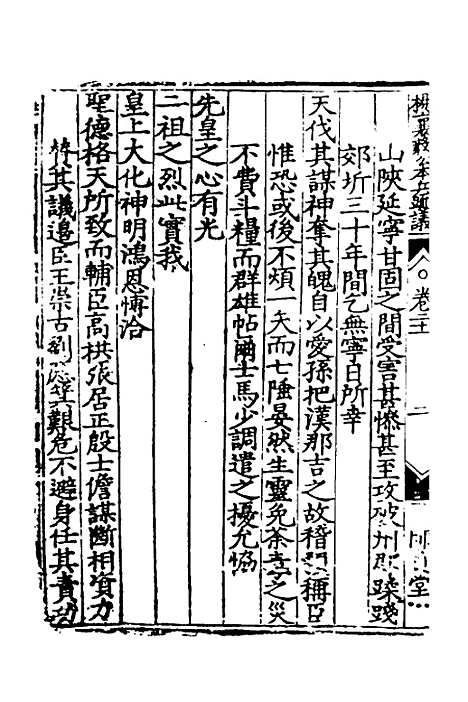 兵部奏疏
卷三
二
堂
山陝延寧甘固之間受害甚慘甚至攻破州郡蹂踐
郊圻三十年間乞無寧日所幸
天伐其謀神奪其魄自以愛孫把漢那吉之故稽顙稱臣
惟恐或後不煩一矢而七陲晏然生靈免荼毒之災
不費斗糧而群雄帖爾士馬少調遣之擾允恊
先皇之心有光
二祖之烈此實我
皇上大化神明鴻恩愽洽
聖德格天所致而輔臣高栱張居正殷士儋謀斷相資力
其議邊臣王崇古劉應箕艱危不避身任其責